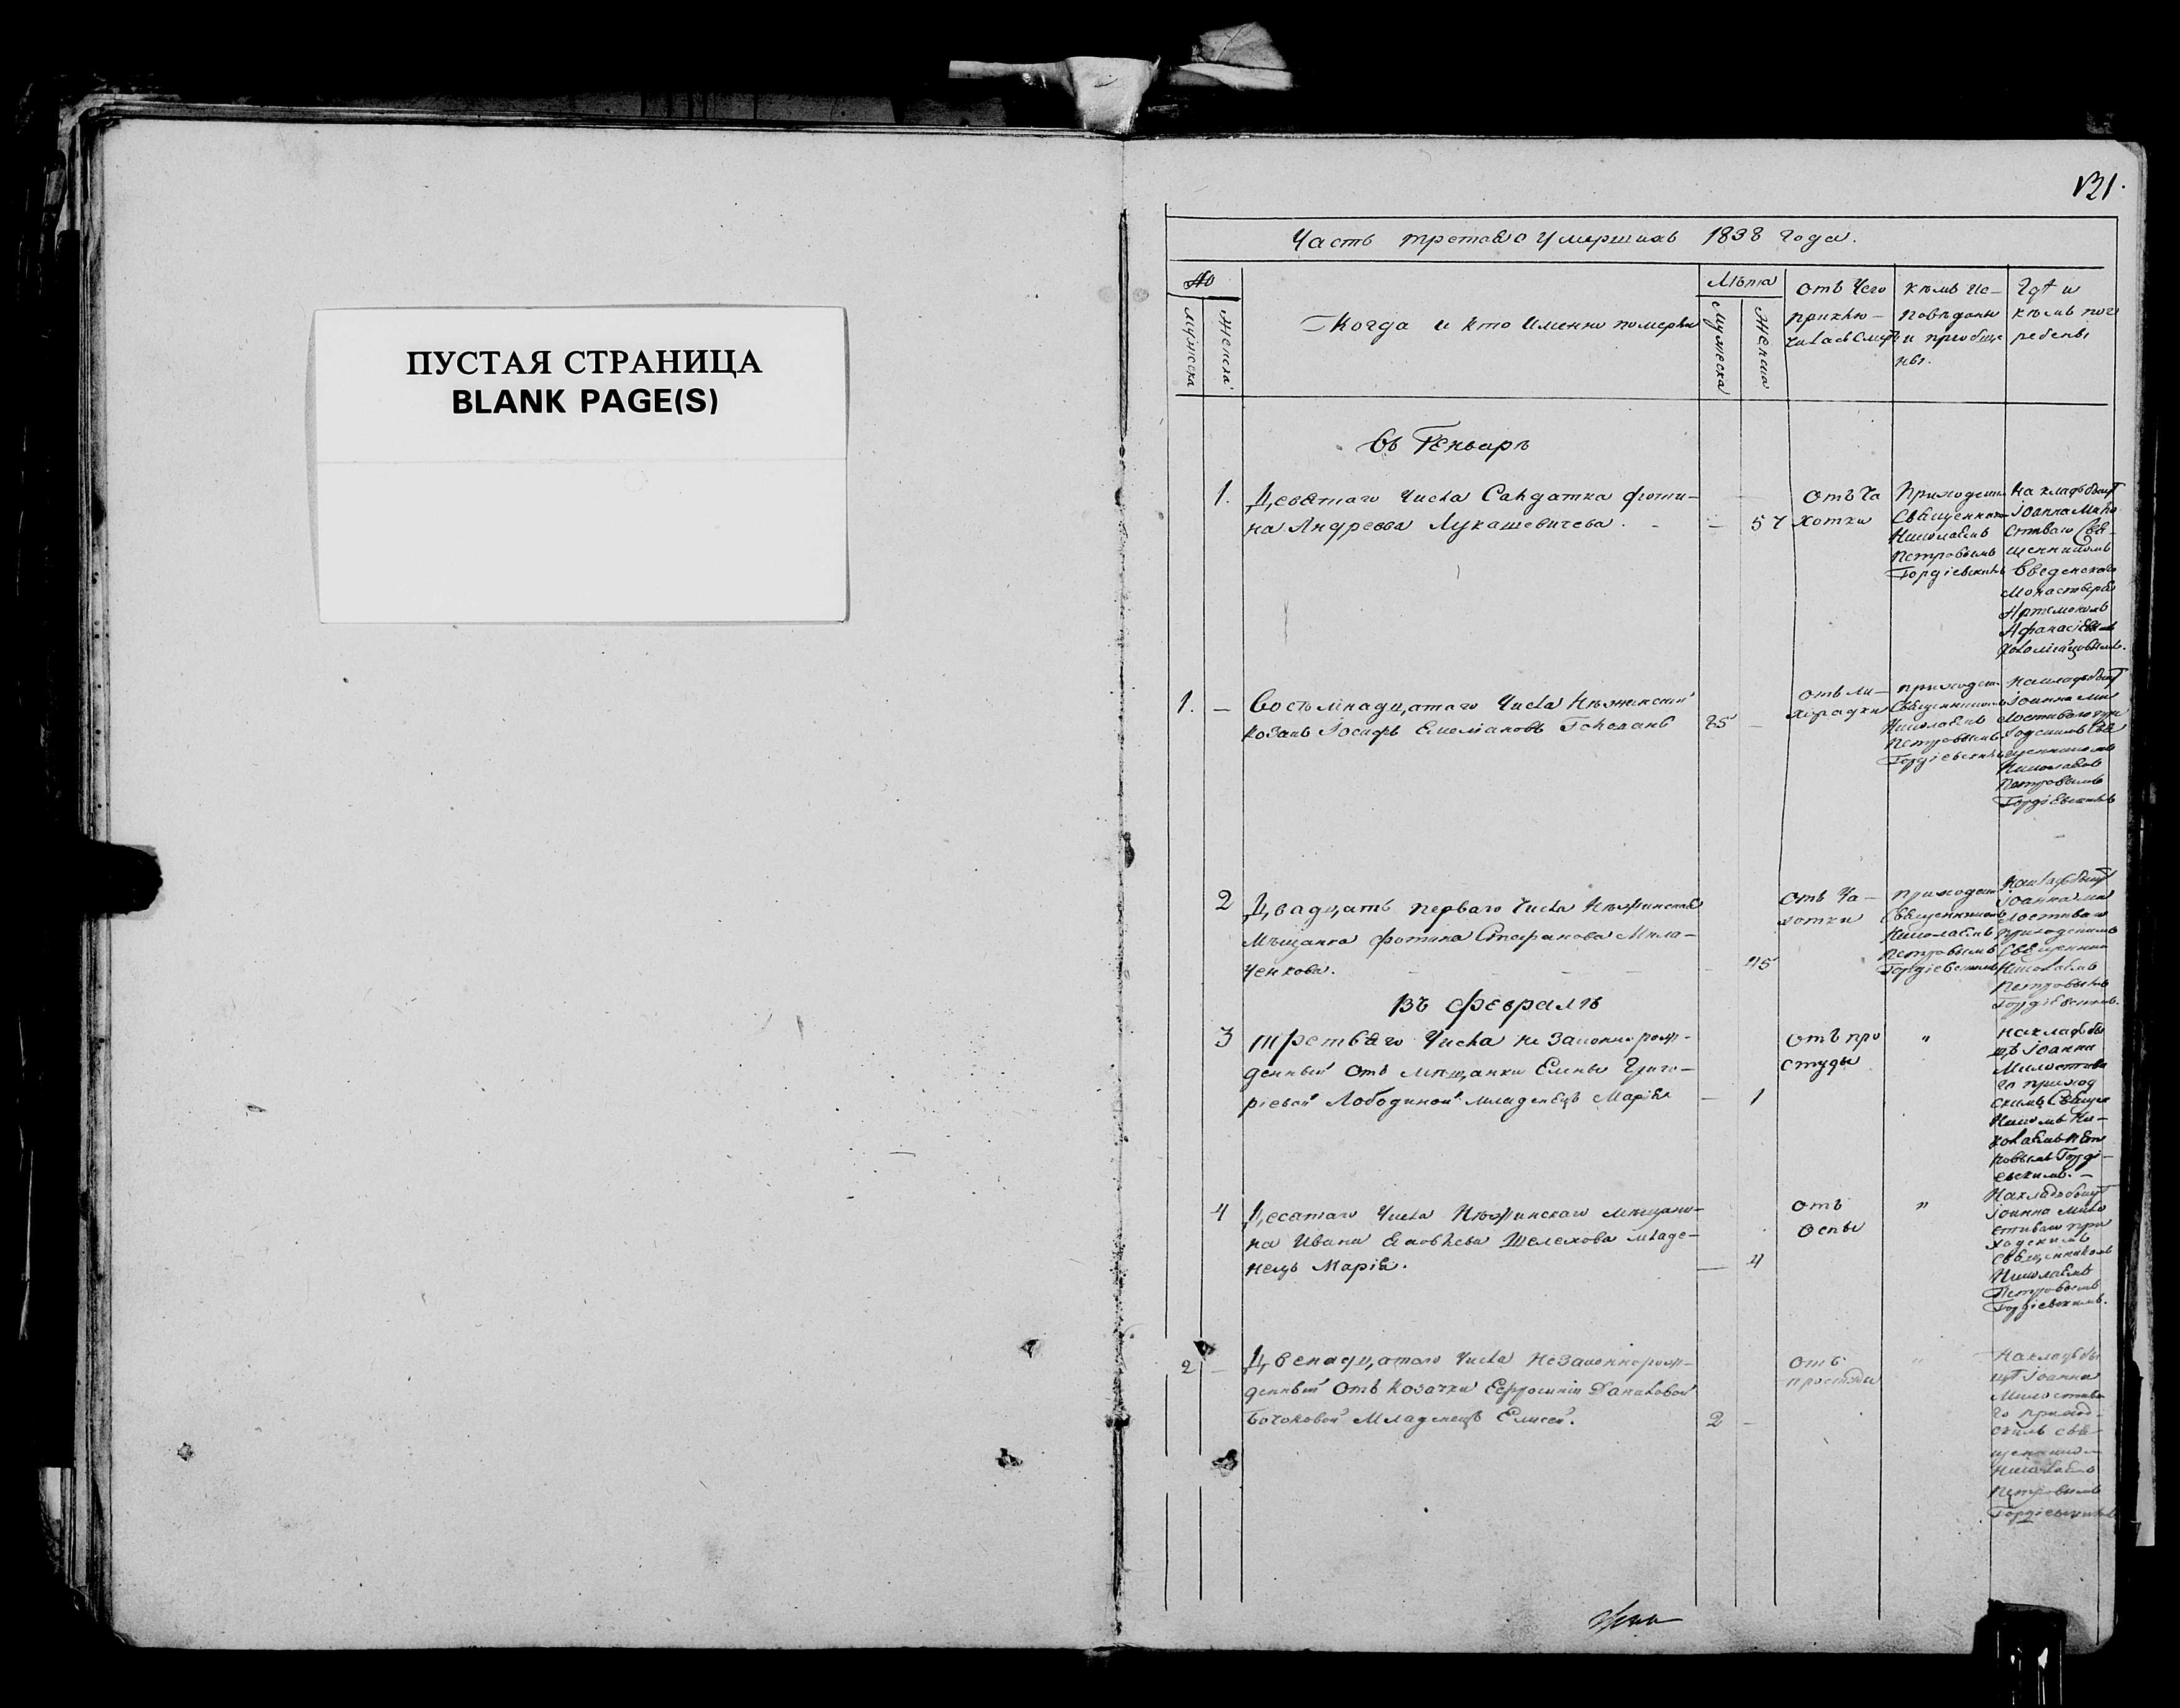 ПУСТАЯ СТРАНИЦА
BLANK PAGE(S)
Часть третая о умершихъ 1838 года.
№
Мужска
Женска
Когда и кто Именно померли
Лѣта
Мужеска
Женска
отъ Чего
приклю-
чилась смерть
кѣмъ Ис-
повѣданы
и приобще
ны.
Гдѣ и
кѣмъ пог
ребены
Въ Генварѣ
1. Девятаго Числа Салдатка Фоти-
на Андреева Лукашевичева. - - 57
отъ Ча
хотки
Приходским
Священником
Николаемъ
Петровымъ
Гордіевскимъ
На кладьбищѣ
Іоанна Мило
стиваго Свя-
щенникомъ
Введенскаго
Монастыря
Артемономъ
Афанасіевымъ
1. - Восемнадцатаго Числа Нѣжинскій
козакъ Іосифъ Емеліановъ 85 -
отъ ли-
хорадки
приходским
Священникомъ
Николаемъ
Петровымъ
Гордіевскимъ
На кладьбищѣ
Іоанна Ми
лостиваго при
ходскимъ Свя
щенникомъ
Николаемъ
Петровымъ
Гордіевскимъ
2 Двадцать перваго Числа Нѣжинская
Мѣщанка Фотина Стефанова Мила-
ченкова. - - - - - 45
отъ Ча-
хотки
приходским
Священникомъ
Николаемъ
Петровымъ
Гордіевскимъ
На кладьбищѣ
Іоанна Ми
лостиваго
приходскимъ
Священник
Николаемъ
Петровымъ
Гордіевскимъ.
Въ Февралѣ
3 Третьяго Числа не законнорож-
денный отъ мѣщанки Елены Григо-
ріевой Лободиной младенецъ Марія - 1
отъ про
студы
"
На кладьби
щѣ Іоанна
Милостива
го приход
скимъ Священ
никомъ Ни-
колаемъ Пет
ровымъ Горді-
евскимъ. -
4 Десятаго Числа Нѣжинскаго мѣщани-
на Ивана Яковлева Шелехова младе-
нецъ Марія. - 4
отъ
Оспы
"
На кладьбищѣ
Іоанна Мило
стиваго при
ходскимъ
Священникомъ
Николаемъ
Петровымъ
Гордіевскимъ.
2 - Двенадцатаго Числа Незаконнорож-
денный отъ козачки Ефросиніи
Младенецъ Елисей. 2 -
отъ
простуды
"
На кладьби
щѣ Іоанна
Милостива
го приход-
скимъ свя-
щенником
Николаемъ
Петровымъ
Гордіевскимъ